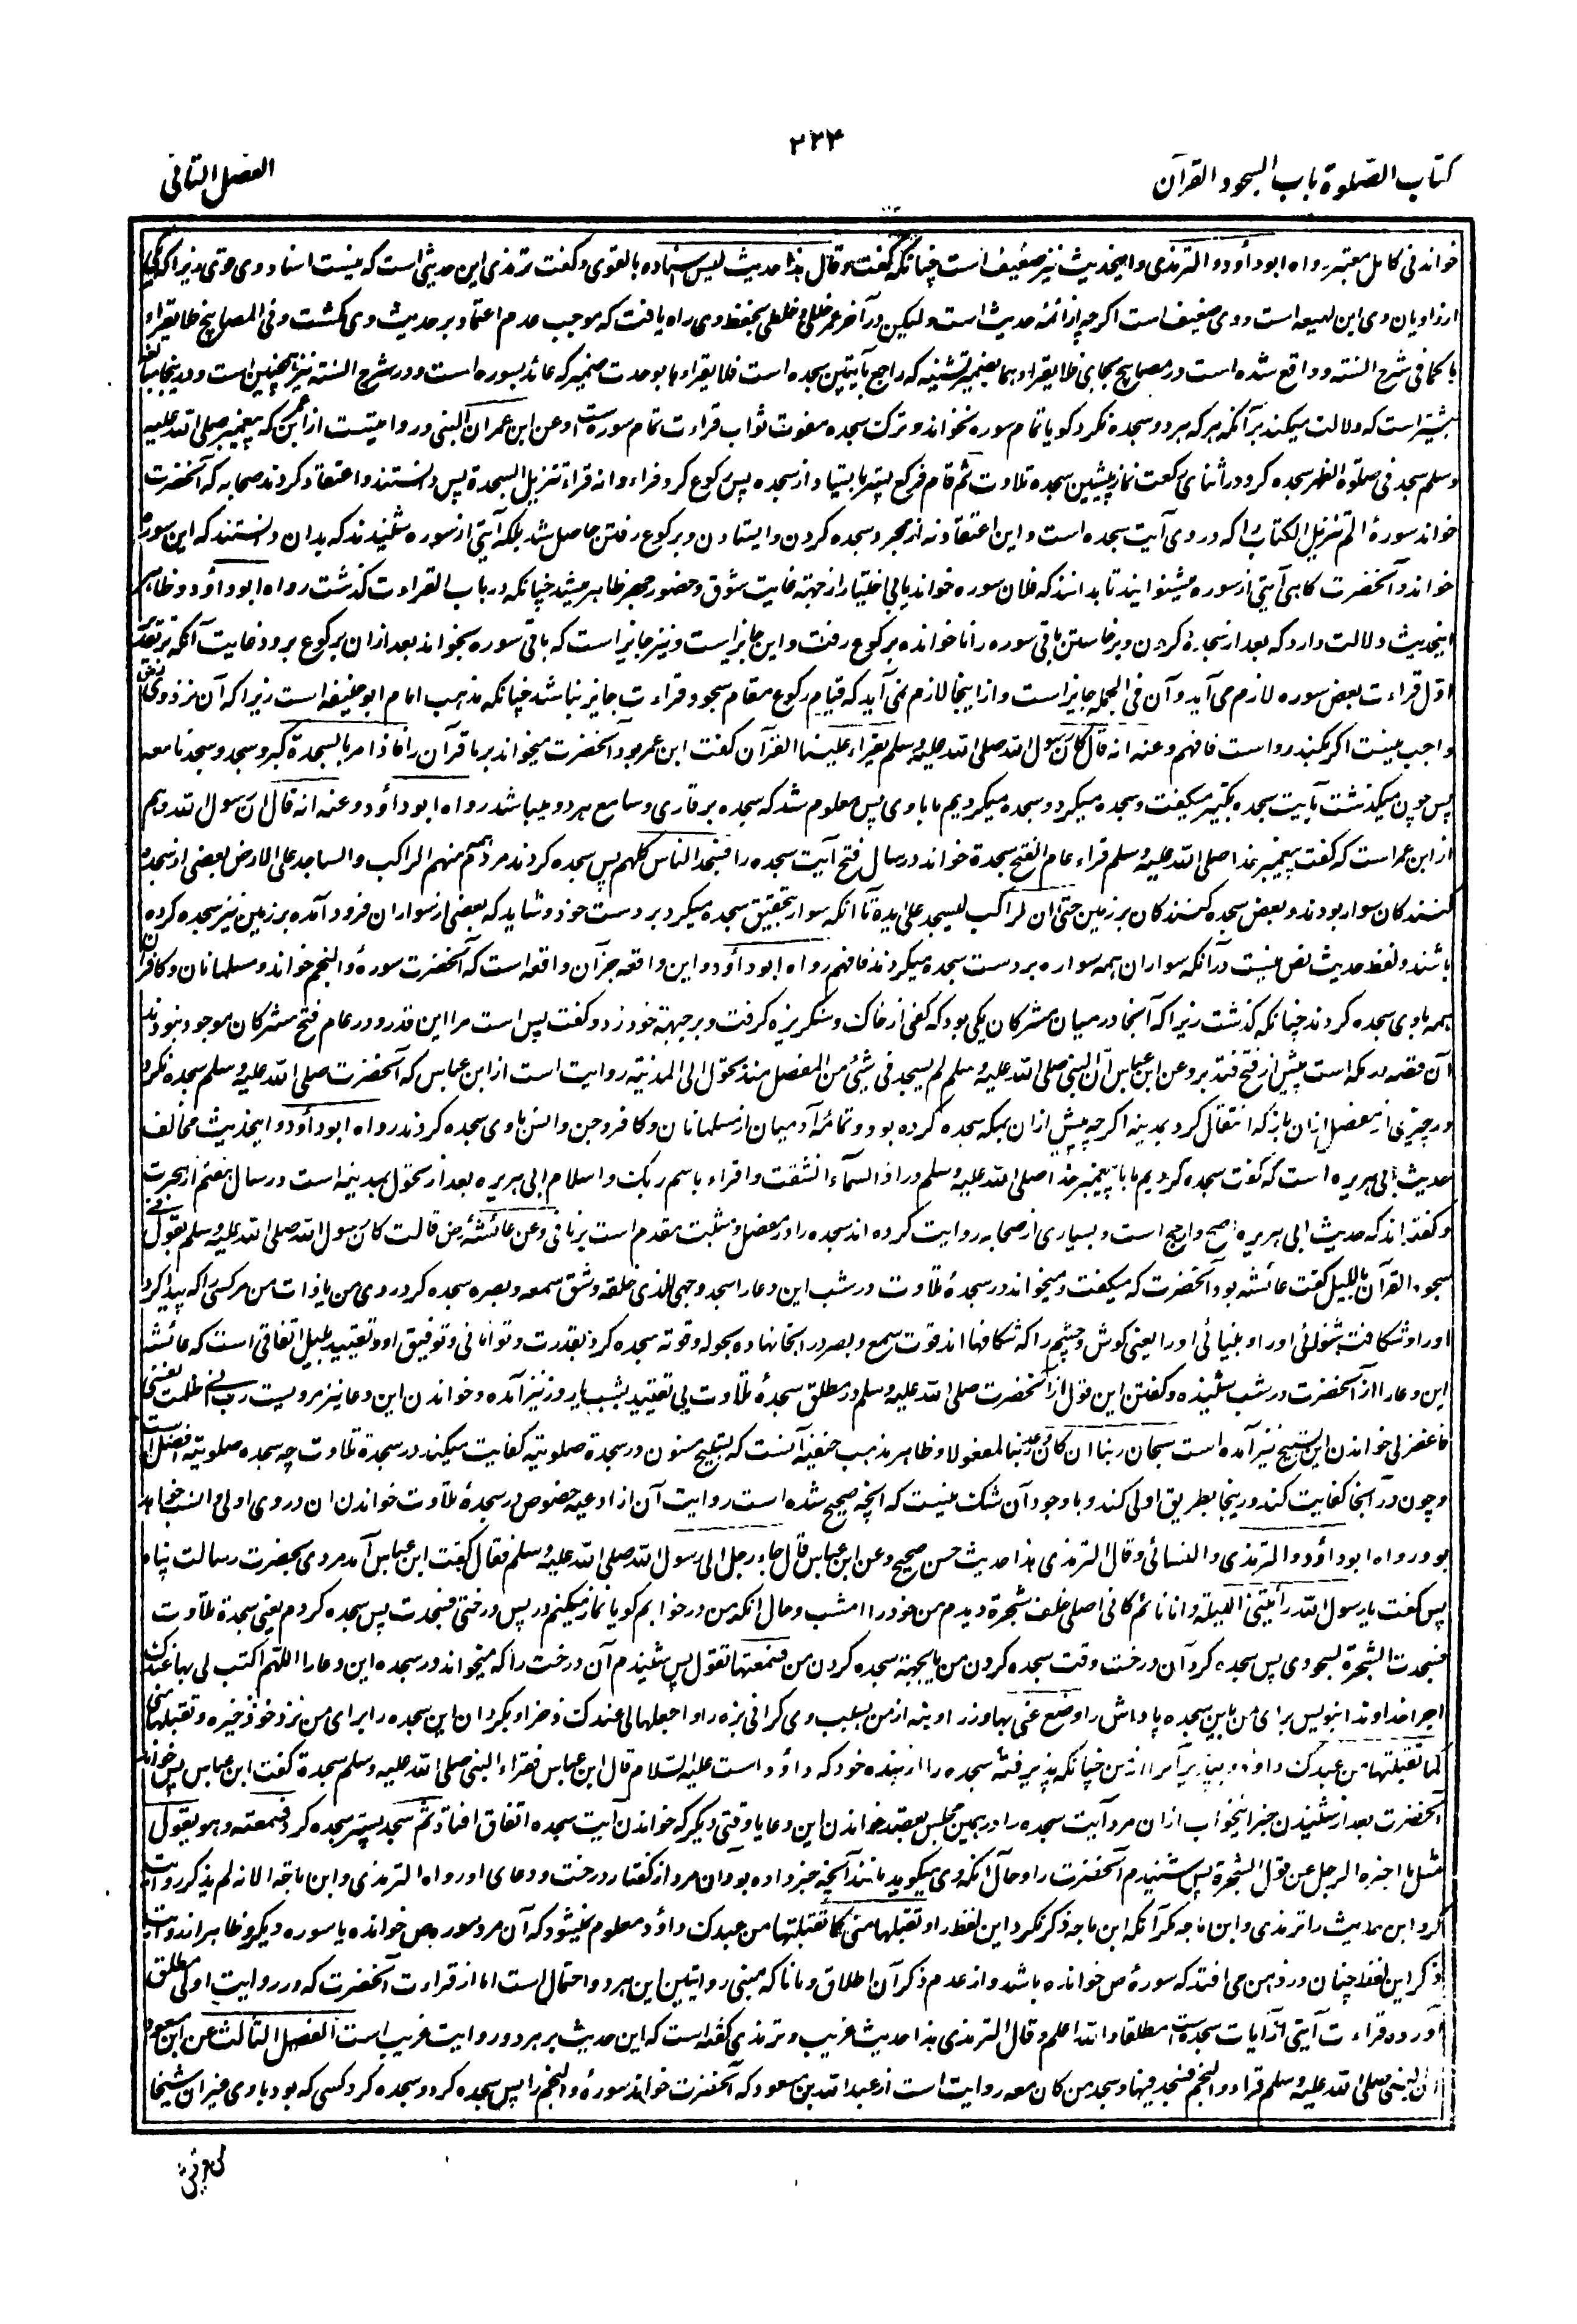 ۲۳۴
کتاب الصلوة باب السجود القرآن
الفصل الثانی
خواند فی کامل معتبر رواه ابوداؤد والترمذی و اینحدیث نیز ضعیف است چنانکه گفت و قال هذا حدیث لیس اسناده بالقوی و گفت ترمذی این حدیثی است که نیست اسناد وی قوی زیرا که یکی
از راویان وی ابن لهیعه است و وی ضعیف است اگرچه از ائمه حدیث است ولیکن در آخر عمر خللی و خلطی بحفظ وی راه یافت که موجب عدم اعتماد بر حدیث وی گشت و فی المصابیح فلا یقرأها
کما فی شرح السنته و واقع شده است در مصابیح بجای فلا یقرأهما بضمیر تثنیه که راجع بآیتین سجده است فلا یقراءها بوحدت ضمیر که عائد بسوره است و در شرح السنته نیز همچنین است و در اینجا مبالغه
بیشتر است که دلالت میکند برآنکه هر که هر دو سجده نکرد گویا تمام سوره نخواند و ترک سجده مفوت ثواب قراءت تمام سوره است وعن ابن عمر ان النبی و روایتست از ابن عمر که پیغمبر صلی الله علیه
وسلم سجد فی صلوة الظهر سجده کرد در اثنای رکعت نماز پیشین سجده تلاوت ثم قام فرکع پستر بایستاد از سجده پس رکوع کرد فراوا انه قراء تنزیل السجدة پس دانستند و اعتقاد کردند صحابه که آنحضرت
خواند سورهٔ الم تنزیل الکتاب را که در وی آیت سجده است و این اعتقاد نه از مجرد سجده کردن و ایستادن و برکوع رفتن حاصل شد بلکه آیتی از سوره شنیدند که بدان دانستند که این سوره
خواند و آنحضرت گاهی آیتی از سوره میشنوانیدند تا بدانند که فلان سوره خواند یا بی اختیار از جهته غایت شوق و حضور جهر ظاهر میشد چنانکه در باب القراءت گذشت رواه ابوداؤد و ظاهر
اینحدیث دلالت دارد که بعد از سجده کردن و برخاستن باقی سوره را ناخوانده برکوع رفت و این جایز است و نیز جایز است که باقی سوره بخواند بعد ازان برکوع برود غایت آنکه بر تقدیر
اول قراءت بعض سوره لازم می آید و آن فی الجمله جایز است و ازاینجا لازم نمی آید که قیام رکوع مقام سجود قراءت جایز نباشد چنانکه مذهب امام ابوحنیفه است زیرا که آن نزد وی
واجب نیست اگر بکند رواست فافهم وعنه انه قال کان رسول الله صلی الله علیه وسلم یقراء علینا القرآن گفت ابن عمر بود آنحضرت میخواند بر ما قرآن را فاذا مر بالسجدة کبر و سجد و سجدنا معه
پس چون میگذشت بآیت سجده تکبیر میگفت و سجده میکرد و سجده میکردیم ما با وی پس معلوم شد که سجده بر قاری و سامع هر دو میباشد رواه ابوداؤد وعنه انه قال ان رسول الله و هم
از ابن عمر است که گفت پیغمبر خدا صلی الله علیه وسلم قراء عام الفتح سجدة خواند در سال فتح آیت سجده را فسجد الناس کلهم پس سجده کردند مردم همه منهم الراکب والساجد علی الارض بعضی از سجده
کنندگان سوار بودند و بعض سجده کنندگان بر زمین حتی ان الراکب لیسجد علی یده تا آنکه سوار بتحقیق سجده میکرد بر دست خود و شاید که بعضی از سواران فرود آمده بر زمین نیز سجده کرده
باشند و لفظ حدیث نص نیست در آنکه سواران همه سواره بر دست سجده میکردند فافهم رواه ابوداؤد و این واقعه جز آن واقعه است که آنحضرت سورهٔ والنجم خواند و مسلمانان و کافران
همه با وی سجده کردند چنانکه گذشت زیرا که آنجا در میان مشرکان یکی بود که کفی از خاک و سنگریزه گرفت و بر جبهته خود زد و گفت بس است مرا این قدر و در عام فتح مشرکان موجود نبودند
آن قصه در مکه است پیش از فتح فتدبر وعن ابن عباس ان النبی صلی الله علیه وسلم لم یسجد فی شیئ من المفصل منذ تحول الی المدینة روایت است از ابن عباس که آنحضرت صلی الله علیه وسلم سجده نکرد
در چیزی از مفصل ازان باز که انتقال کرد بمدینه اگرچه پیش ازان بمکه سجده کرده بود و تمامهٔ آدمیان از مسلمانان و کافر و جن و انس با وی سجده کردند رواه ابوداؤد و اینحدیث مخالف
حدیث ابی هریره است که گفت سجده کردیم ما با پیغمبر خدا صلی الله علیه وسلم در اذا السمآء انشقت و اقراء باسم ربک و اسلام ابی هریره بعد از تحول بمدینه است در سال هفتم از هجرت
و گفته اند که حدیث ابی هریره اصح و ارجح است و بسیاری از صحابه روایت کرده اند سجده را در مفصل و مثبت مقدم است بر نافی وعن عائشة رض قالت کان رسول الله صلی الله علیه وسلم یقول فی
سجود القرآن باللیل گفت عائشه بود آنحضرت که میگفت و میخواند در سجدهٔ تلاوت در شب این دعا را سجد وجهی للذی خلقه وشق سمعه وبصره سجده کرد روی من یا ذات من مر کسی را که پیدا کرد
اورا و شگافت شنوائی اورا و بینائی اورا یعنی گوش و چشم را که شگافها اند قوت سمع و بصر در انجا نهاده بحوله وقوته سجده کرد بقدرت و توانائی و توفیق او و تقیید بلیل اتفاقی است که عائشه
این دعا را از آنحضرت در شب شنیده و گفتن این قول از آنحضرت صلی الله علیه وسلم در مطلق سجدهٔ تلاوت بی تقیید بشب یا روز نیز آمده و خواندن این دعا نیز مرویست رب انی ظلمت نفسی
فاغفر لی خواندن این تسبیح نیز آمده است سبحان ربنا ان کان وعد ربنا لمفعولا و ظاهر مذهب حنفیه آنست که تسبیح مسنون در سجدة صلوتیة کفایت میکند در سجدة تلاوت چه سجده صلوتیة افضل است
و چون در آنجا کفایت کند در ینجا بطریق اولی کند و با وجود آن شک نیست که آنچه صحیح شده است روایت آن از ادعیه خصوص در سجدهٔ تلاوت خواندن ان در وی اولی و انسب خواهد
بود رواه ابوداؤد والترمذی والنسائی وقال الترمذی هذا حدیث حسن صحیح وعن ابن عباس قال جاء رجل الی رسول الله صلی الله علیه وسلم فقال گفت ابن عباس آمد مردی بحضرت رسالت پناه
پس گفت یا رسول الله رأیتنی اللیلة وانا نائم کانی اصلی خلف شجرة دیدم من خود را امشب و حال آنکه من در خوابم گویا نماز میکنم در پس درختی فسجدت پس سجده کردم یعنی سجدة تلاوت
فسجدت الشجرة لسجودی پس سجده کرد آن درخت وقت سجده کردن من یا بجهته سجده کردن من فسمعتها تقول پس شنیدم آن درخت را که میخواند در سجده این دعا را اللهم اکتب لی بها عندک
اجرا خداوندا بنویس برای من باین سجده پاداش را وضع عنی بها وزرا و بنه از من بسبب وی گرانی بزه را واجعلها لی عندک ذخرا و بگردان این سجده را برای من نزد خود ذخیره وتقبلها منی
کما تقبلتها من عبدک داؤد و بپذیر آنرا از من چنانکه پذیرفته سجده را از بنده خود که داؤد است علیه السلام قال ابن عباس فقراء النبی صلی الله علیه وسلم سجدة گفت ابن عباس پس خواند
آنحضرت بعد از شنیدن خبر اینخواب ازان مرد آیت سجده را در همین مجلس بقصد خواندن این دعا یا وقتی دیگر که خواندن آیت سجده اتفاق افتاد ثم سجد پستر سجده کرد فسمعته وهو یقول
مثل ما اخبره الرجل عن قول الشجرة پس شنیدم آنحضرت را و حال آنکه وی میگوید مانند آنچه خبر داده بود آن مرد از گفتار درخت و دعای او رواه الترمذی وابن ماجه الا انه لم یذکر روایت
کرد این حدیث را ترمذی و ابن ماجه مگر آنکه ابن ماجه ذکر نکرد این لفظ را وتقبلها منی کما تقبلتها من عبدک داؤد و معلوم نمیشود که آن مرد سوره ص خوانده یا سوره دیگر و ظاهر از روایت
ذکر این لفظ چنان در ذهن می افتد که سورهٔ ص خوانده باشد و از عدم ذکر آن اطلاق و مانا که مبنی روایتین این هر دو احتمال است اما از قراءت آنحضرت که در روایت اولی مطلق
آورده قراءت آیتی از آیات سجده است مطلقا والله اعلم وقال الترمذی هذا حدیث غریب و ترمذی گفته است که این حدیث بر هر دو روایت غریب است الفصل الثالث عن ابن مسعود
ان النبی صلی الله علیه وسلم قراء والنجم فسجد فیها وسجد من کان معه روایت است از عبدالله بن مسعود که آنحضرت خواند سورهٔ والنجم را پس سجده کرد و سجده کرد کسی که بود با وی غیر ان شیخا